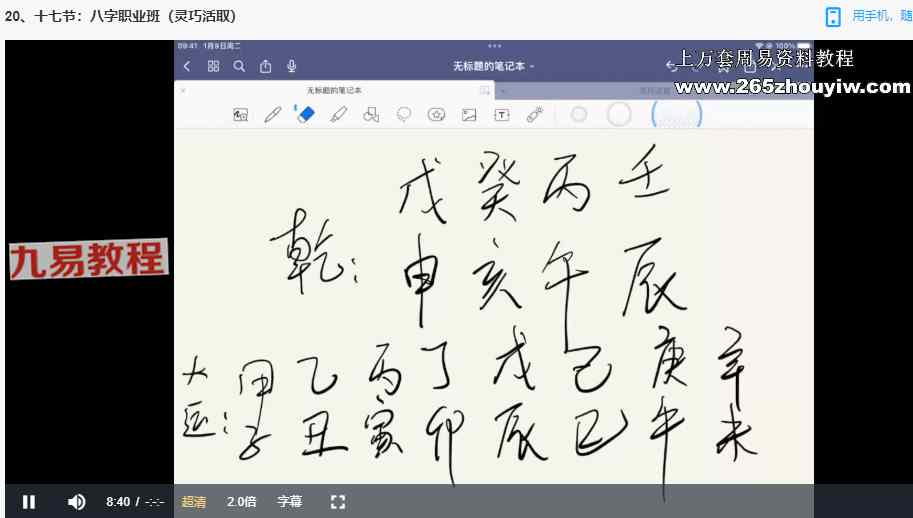 20、十七节：八字职业班（灵巧活取）
用手机，随
09:41 1月9日周二
100%
无标题的笔记本
上万套周易资料教程
www.265zhouyiw.com
无标题的笔记本
戊 癸 丙 壬
乾：
申 亥 午 辰
九易教程
大 甲 乙 丙 丁 戊 己 庚 辛
运： 子 丑 寅 卯 辰 巳 午 未
8:40 / -:-:-
超清 2.0倍 字幕